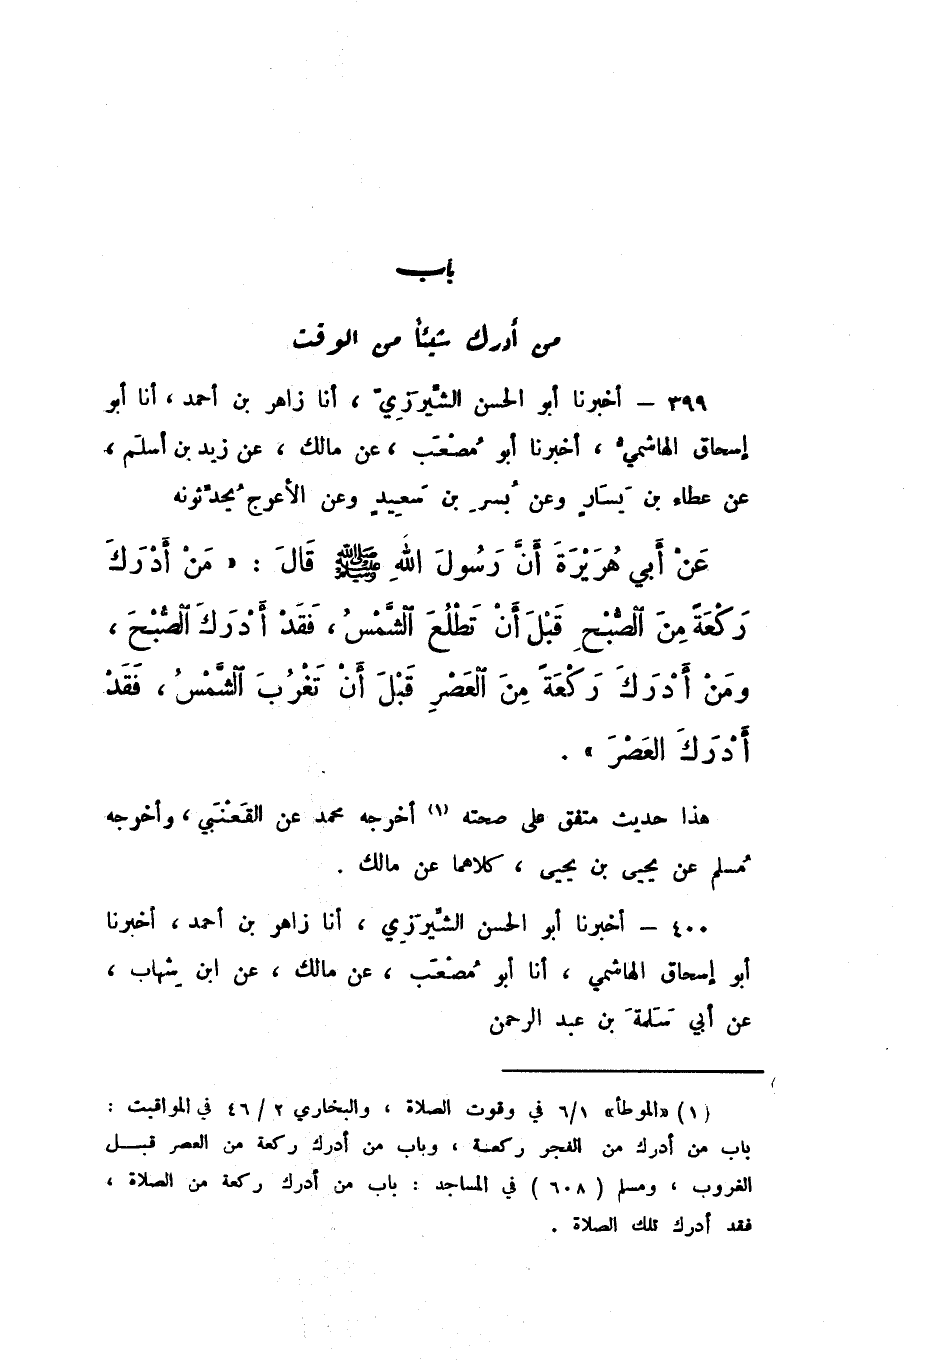 باب
من أدرك شيئاً من الوقت
٣٩٩ – أخبرنا أبو الحسن الشَّيرَزِيّ ، أنا زاهر بن أحمد ، أنا أبو
إسحاق الهاشميُّ ، أخبرنا أبو مُصْعَب ، عن مالك ، عن زيد بن أسلَم ،
عن عطاء بن يَسَارٍ وعن بُسرِ بن سَعِيدٍ وعن الأعرج يُحدِّثونه
عَنْ أَبي هُرَيْرَةَ أَنَّ رَسُولَ اللهِ ﷺ قَالَ : « مَنْ أَدْرَكَ
رَكْعَةً مِنَ الصُّبْحِ قَبْلَ أَنْ تَطْلُعَ الشَّمْسُ ، فَقَدْ أَدْرَكَ الصُّبْحَ ،
ومَنْ أَدْرَكَ رَكْعَةً مِنَ العَصْرِ قَبْلَ أَنْ تَغْرُبَ الشَّمْسُ ، فَقَدْ
أَدْرَكَ العَصْرَ » .
هذا حديث متفق على صحته (١) أخرجه محمد عن القَعْنَبي ، وأخرجه
مُسلم عن يحيى بن يحيى ، كلاهما عن مالك .
٤٠٠ – أخبرنا أبو الحسن الشَّيرَزِي ، أنا زاهر بن أحمد ، أخبرنا
أبو إسحاق الهاشمي ، أنا أبو مُصْعَب ، عن مالك ، عن ابن شِهاب ،
عن أبي سَلَمةَ بن عبد الرحمن
(١) «الموطأ» ٦/١ في وقوت الصلاة ، والبخاري ٢ / ٤٦ في المواقيت :
باب من أدرك من الفجر ركعة ، وباب من أدرك ركعة من العصر قبل
الغروب ، ومسلم ( ٦٠٨ ) في المساجد : باب من أدرك ركعة من الصلاة ،
فقد أدرك تلك الصلاة .